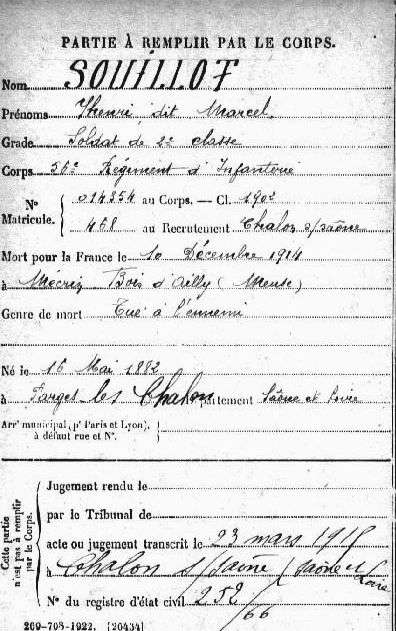 PARTIE À REMPLIR PAR LE CORPS.
Nom SOUILLOT
Prénoms Henri dit Marcel
Grade Soldat de 2e classe
Corps 56e Régiment d'Infanterie
N° Matricule. { 014354 au Corps. — Cl. 1902
468 au Recrutement Chalon s/saône
Mort pour la France le 10 Décembre 1914
à Mécrin Bois d'Ailly (Meuse)
Genre de mort Tué à l'ennemi
Né le 16 Mai 1882
à Farges les Chalon Département Saône et Loire
Arrt municipal (pr Paris et Lyon), à défaut rue et N°. {
Cette partie n'est pas à remplir par le Corps.
Jugement rendu le
par le Tribunal de
acte ou jugement transcrit le 23 mars 1915
à Chalon s/Saône (Saône et Loire
N° du registre d'état civil 252/66
269-708-1922. [20434]